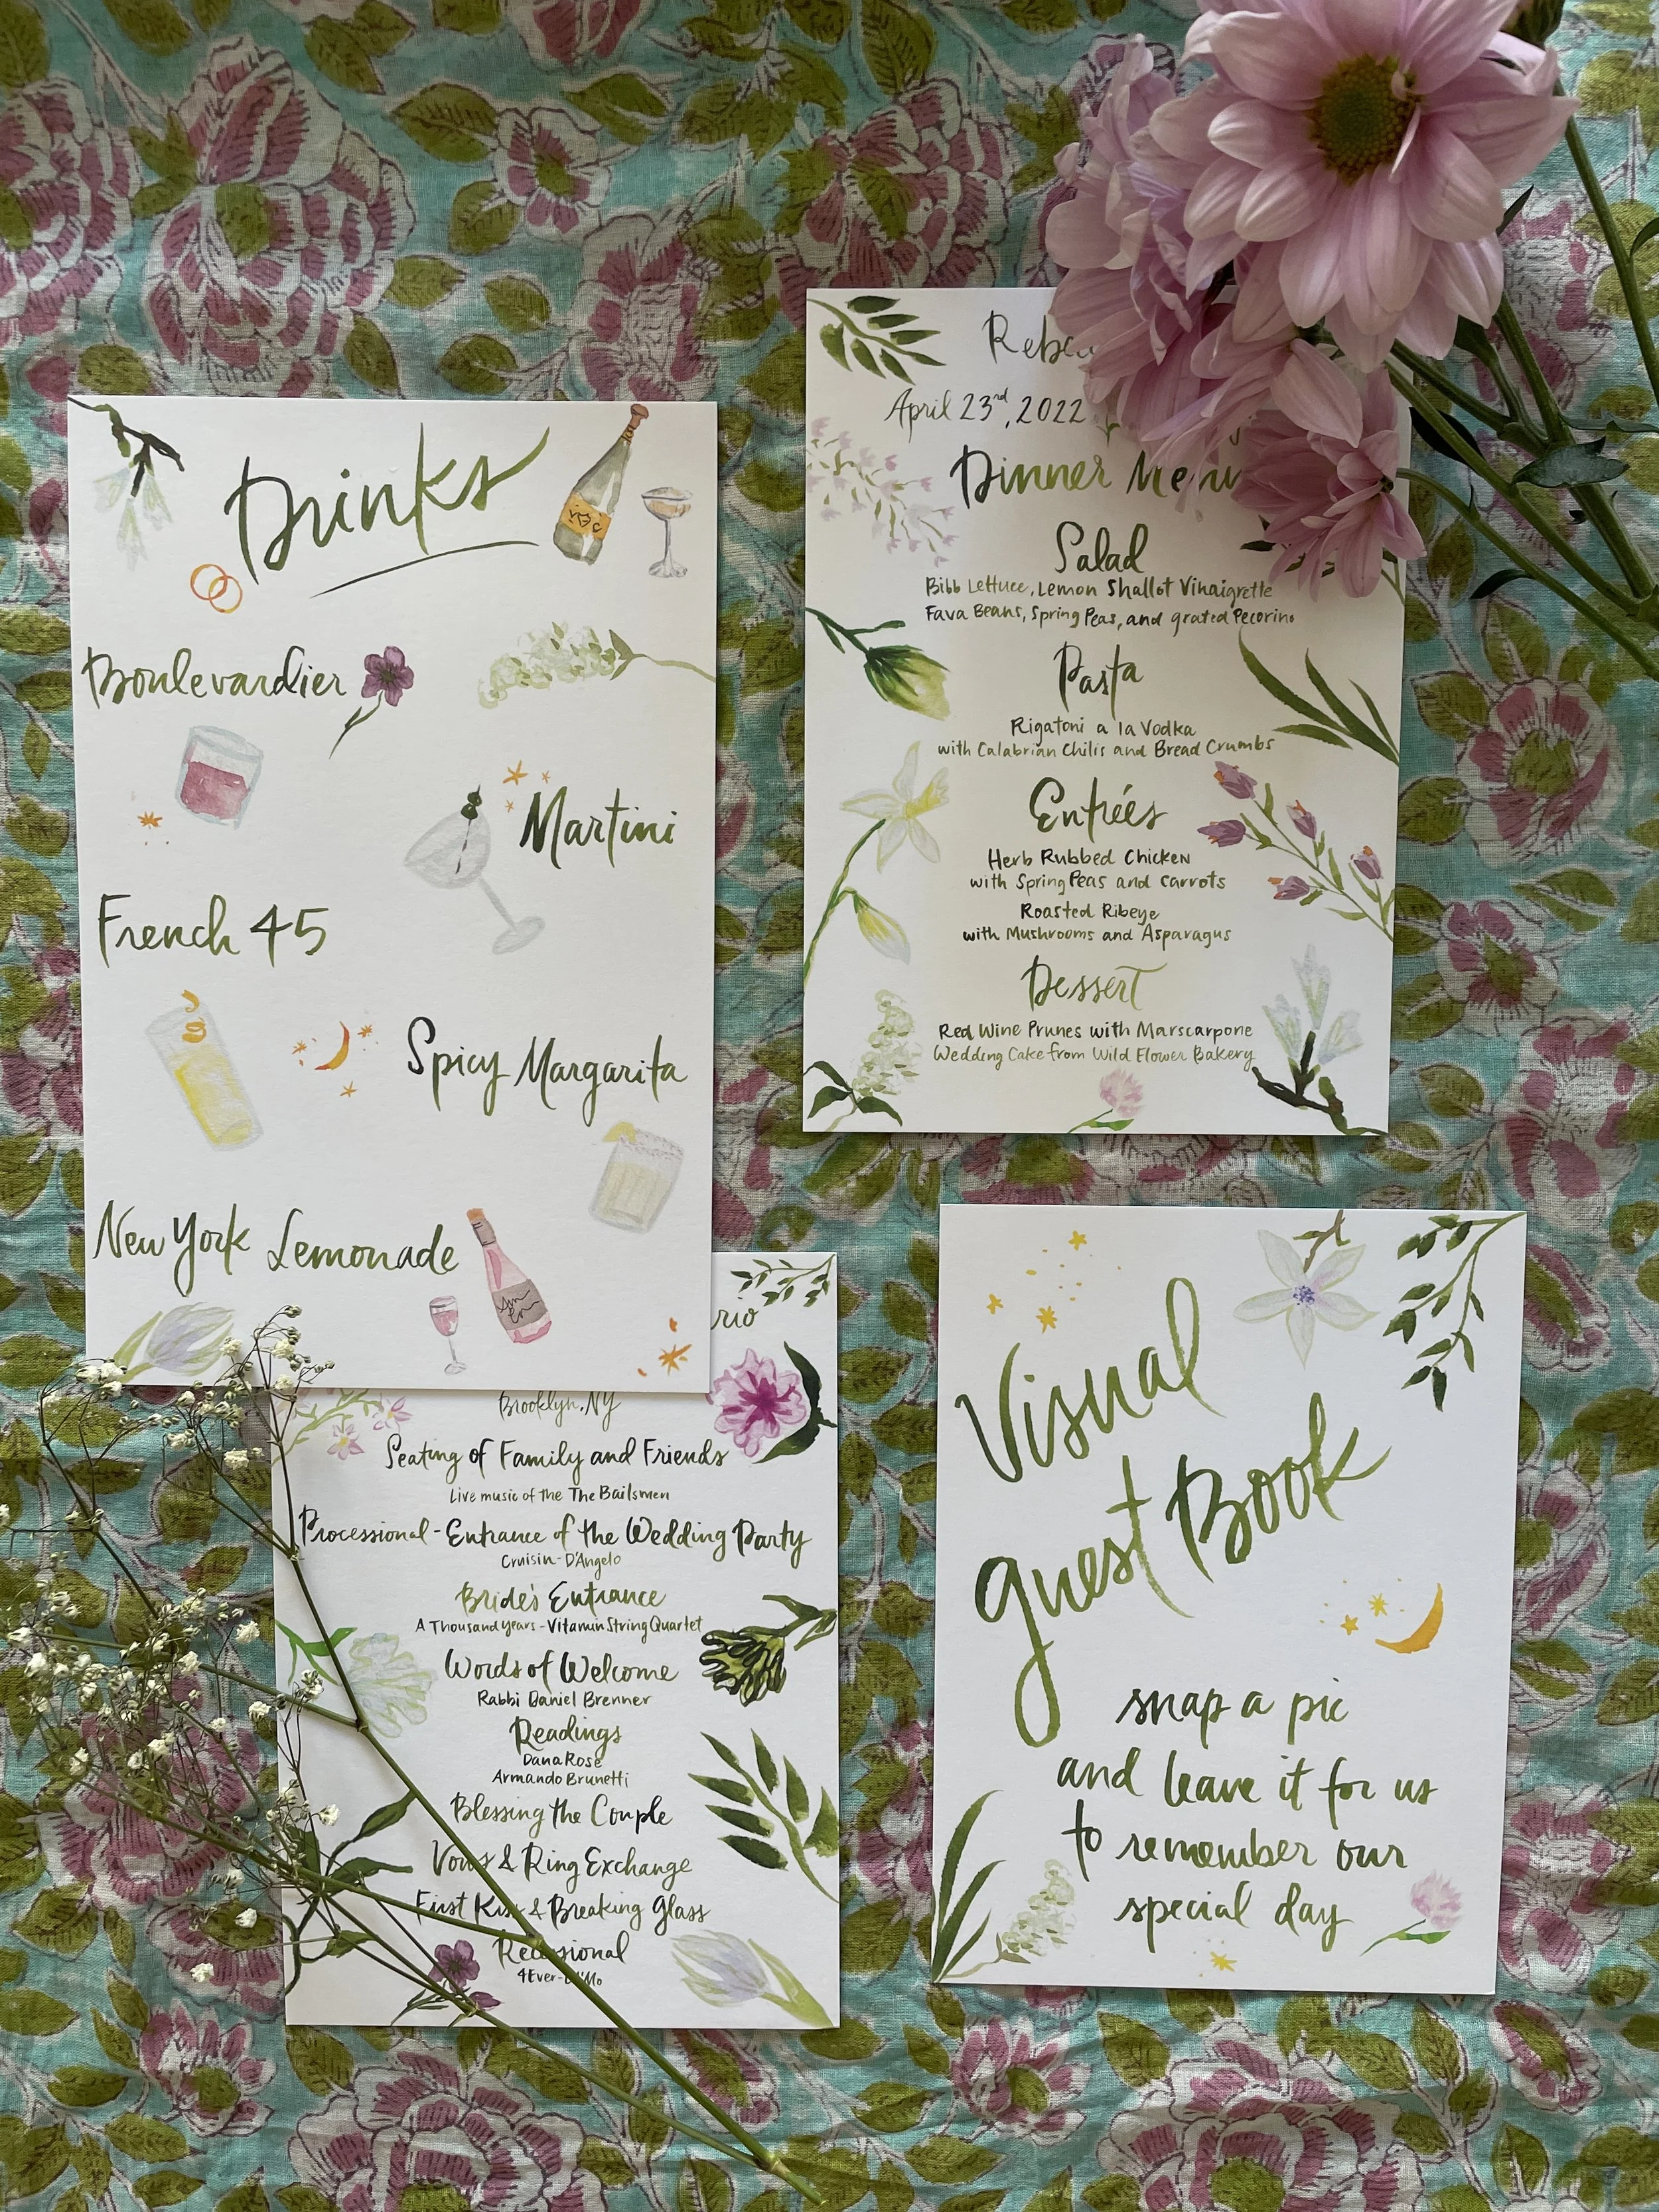 Drinks
Boulevardier
Martini
French 45
Spicy Margarita
New York Lemonade
April 23rd, 2022
Dinner Menu
Salad
Bibb Lettuce, Lemon Shallot Vinaigrette
Fava Beans, Spring Peas, and grated Pecorino
Pasta
Rigatoni a la Vodka
with Calabrian Chilis and Bread Crumbs
Entrées
Herb Rubbed Chicken
with Spring Peas and carrots
Roasted Ribeye
with Mushrooms and Asparagus
Dessert
Red Wine Prunes with Marscarpone
Wedding Cake from Wild Flower Bakery
Brooklyn, NY
Seating of Family and Friends
Live music of the The Bailsmen
Processional - Entrance of the Wedding Party
Cruisin - D'Angelo
Bride's Entrance
A Thousand years - Vitamin String Quartet
Words of Welcome
Rabbi Daniel Brenner
Readings
Dana Rose
Armando Brunetti
Blessing the Couple
Vows & Ring Exchange
First Kiss & Breaking Glass
Recessional
4Ever -
Visual
guest Book
snap a pic
and leave it for us
to remember our
special day